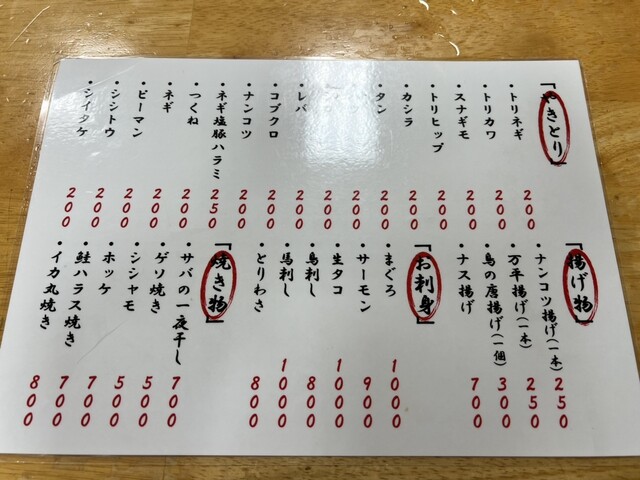 「やきとり」
・トリネギ 200
・トリカワ 200
・スナギモ 200
・トリヒップ 200
・カシラ 200
・タン 200
200
200
・レバ 200
・コブクロ 200
・ナンコツ 200
・ネギ塩豚ハラミ 250
・つくね 200
・ネギ 200
・ピーマン 200
・シシトウ 200
・シイタケ 200
「揚げ物」
・ナンコツ揚げ(一本) 250
・万平揚げ(一本) 250
・鳥の唐揚げ(一個) 300
・ナス揚げ 700
「お刺身」
・まぐろ 1000
・サーモン 900
・生タコ 1000
・鳥刺し 800
・馬刺し 1000
・とりわさ 800
「焼き物」
・サバの一夜干し 700
・ゲソ焼き 500
・シシャモ 500
・ホッケ 700
・鮭ハラス焼き 700
・イカ丸焼き 800